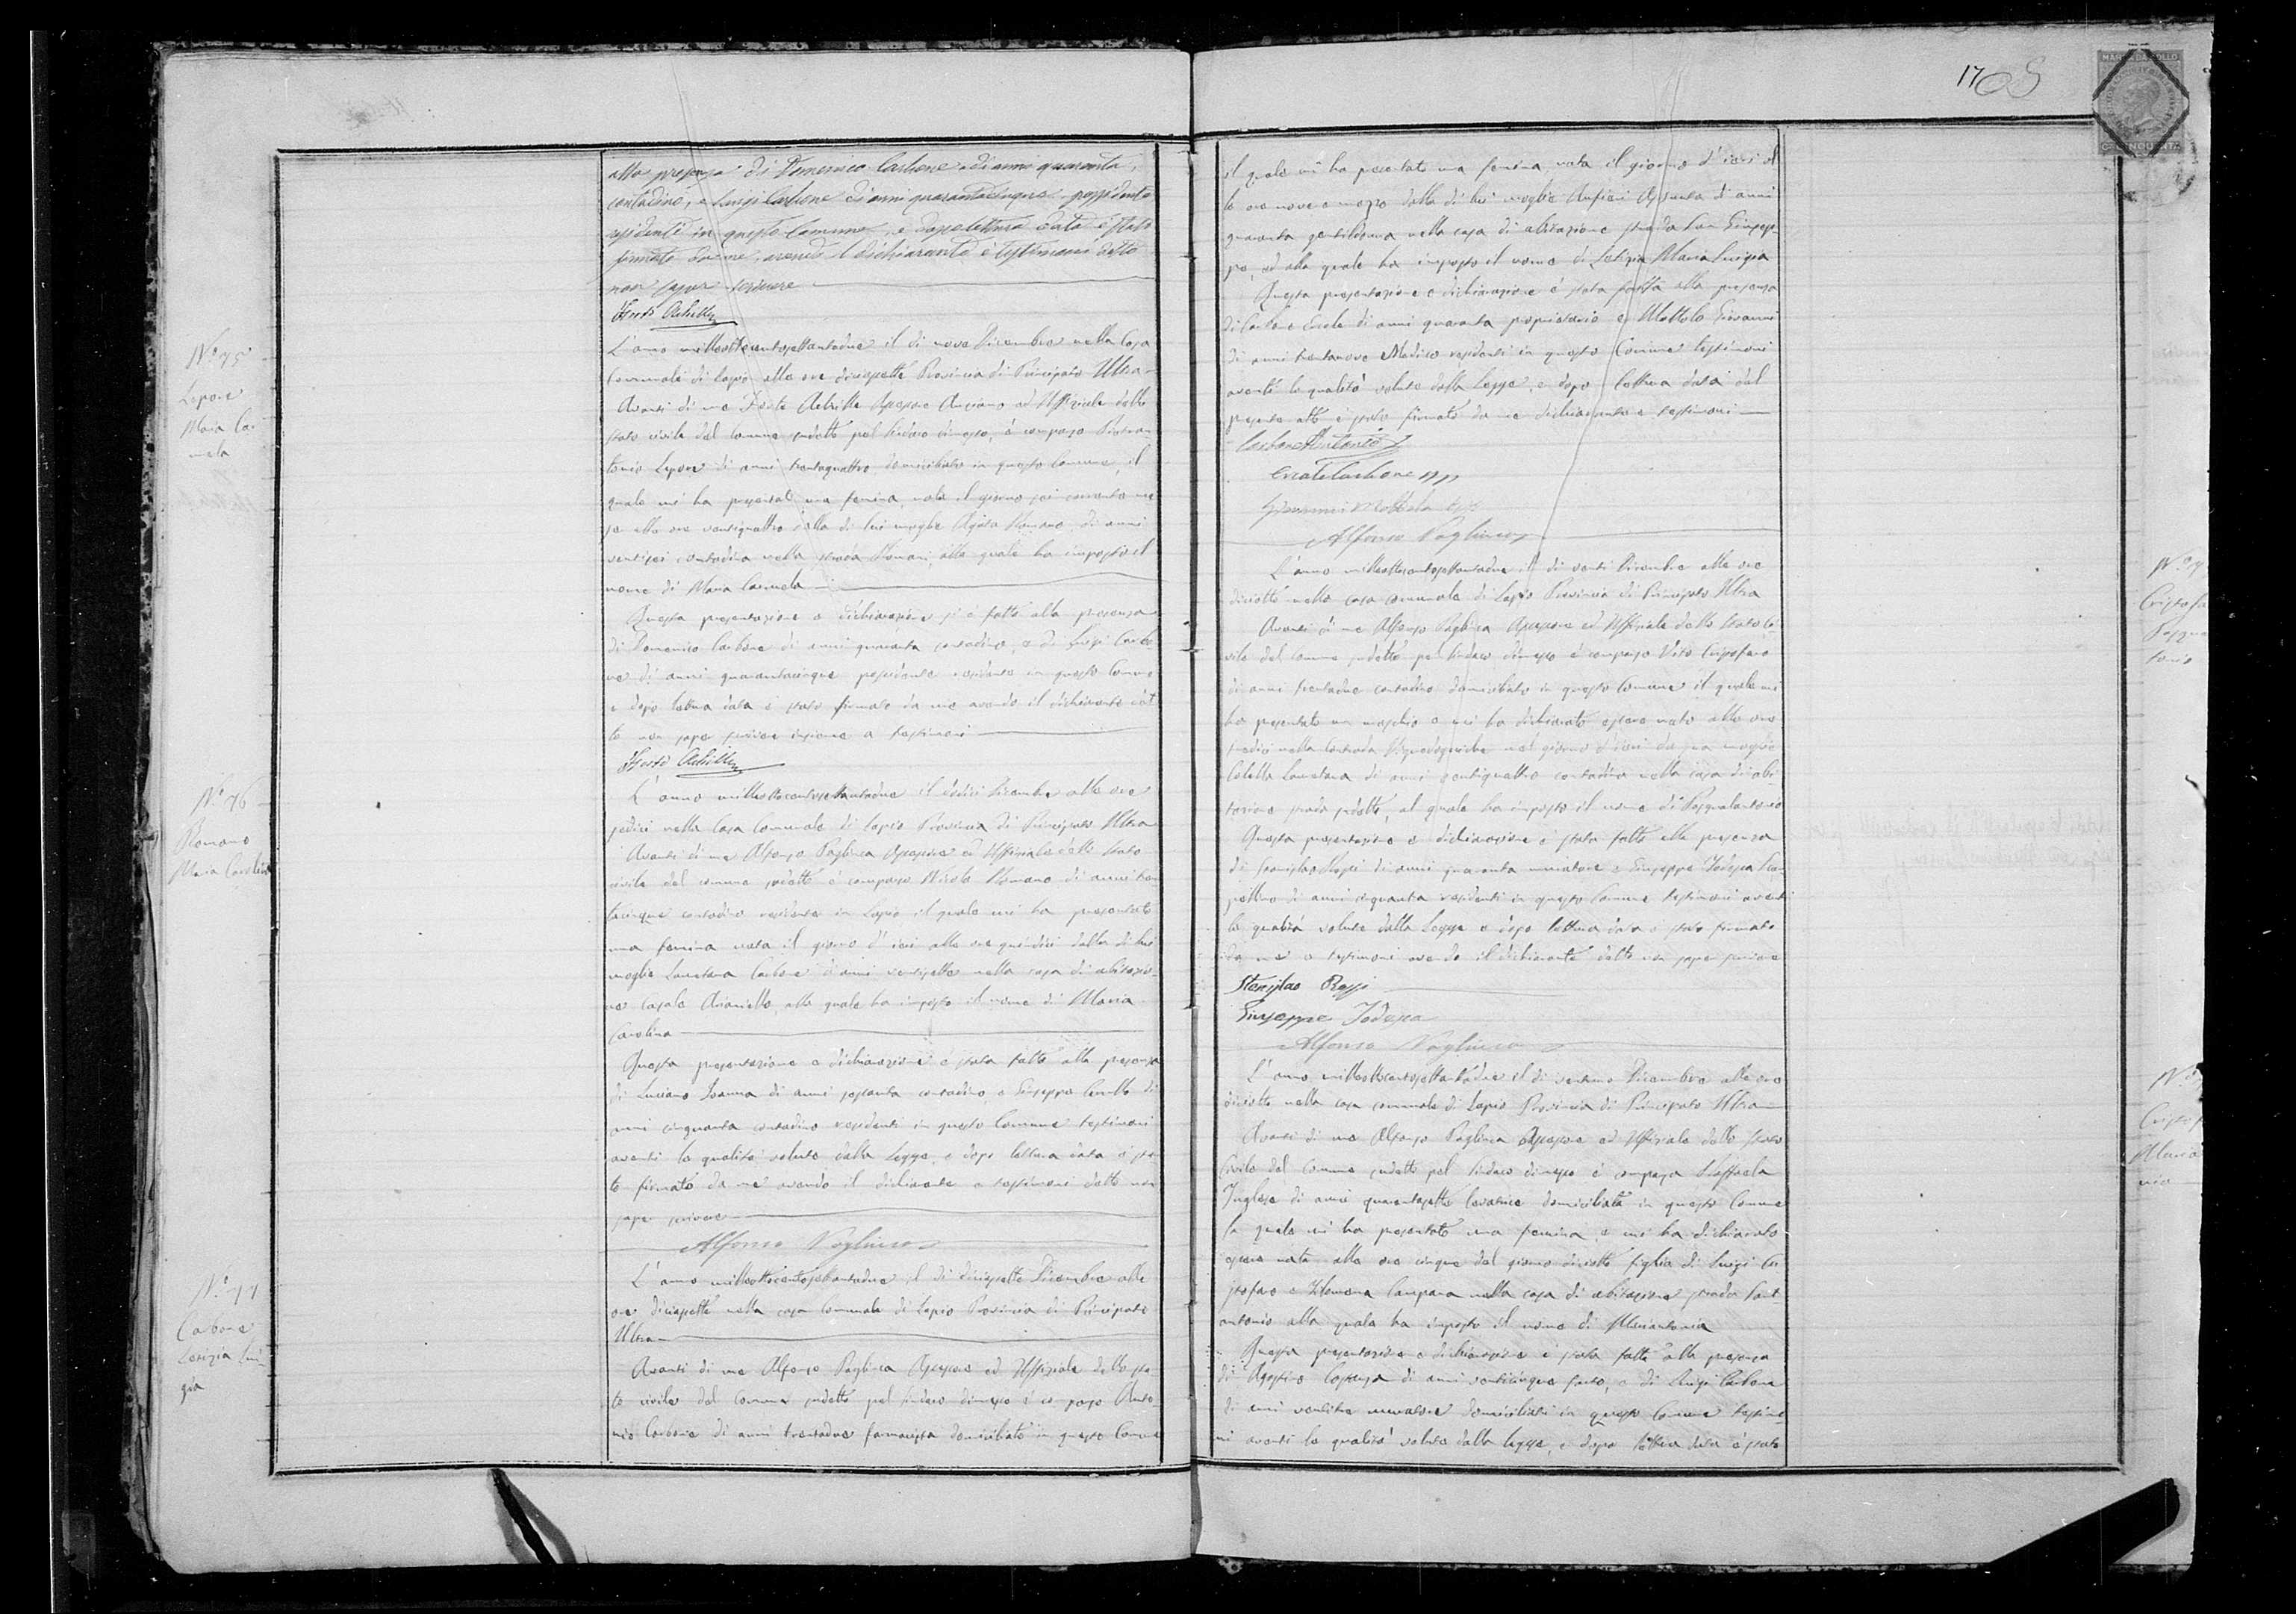 alla presenza di Domenico Carbone di anni quaranta,
contadino, e Luigi Carbone di anni quarantacinque possidente
residenti in questo Comune, e dopo lettura data è stato
firmato da me, avendo il dichiarante e testimoni detto
non saper scrivere
Achille
No 75
Lepore
Maria Car
mela
L'anno milleottocentosettantadue il dì nove Dicembre nella Casa
Comunale di Lapio alle ore diciasette Provincia di Principato Ultra
Avanti di me Achille Assessore Anziano ed Uffiziale dello
stato civile del Comune sudetto pel Sindaco dimesso, è comparso
Lepore di anni trentaquattro domiciliato in questo Comune, il
quale mi ha presentato una femina, nata il giorno sei corrente me
se alle ore ventiquattro dalla di lui moglie Agata Romano di anni
ventisei contadina nella strada Romani, alla quale ha imposto il
nome di Maria Carmela
Questa presentazione e dichiarazione si è fatta alla presenza
di Domenico Carbone di anni quaranta contadino, e di Luigi Carbo
ne di anni quarantacinque possidente residente in questo Comune
e dopo lettura data è stato firmato da me avendo il dichiarante det
to non saper scrivere insieme a testimoni
Achille
No 76
Romano
Maria Carolina
L'anno milleottocentosettantadue il dodici Dicembre alle ore
sedici nella Casa Comunale di Lapio Provincia di Principato Ultra
Avanti di me Alfonso Pagliuca Assessore ed Uffiziale dello Stato
civile del comune sudetto è comparso Nicola Romano di anni tren
tacinque contadino residente in Lapio il quale mi ha presentato
una femina nata il giorno d'ieri alle ore quindici dalla di lui
moglie Lauretana Carbone di anni ventisette nella casa di abitazio
ne Casale Arianiello, alla quale ha imposto il nome di Maria
Carolina
Questa presentazione e dichiarazione è stata fatta alla presenza
di Luciano Ioanna di anni sessanta contadino, e Giuseppe di
anni cinquanta contadino residenti in questo Comune testimoni
aventi le qualità volute dalla legge, e dopo lettura data è sta
to firmato da me avendo il dichiarante e testimoni detto non
saper scrivere
Alfonso Pagliuca
No 77
Carbone
Letizia Lui
gia
L'anno milleottocentosettantadue il dì diciasette Dicembre alle
ore diciasette nella casa Comunale di Lapio Provincia di Principato
Ultra
Avanti di me Alfonso Pagliuca Assessore ed Uffiziale dello sta
to civile del Comune sudetto pel Sindaco dimesso è comparso Anto
nio Carbone di anni trentadue farmacista domiciliato in questo Comune
170
MARCA DA BOLLO
il quale mi ha presentato una femina nata il giorno d'ieri al
le ore nove e mezzo dalla di lui moglie Assunta di anni
quaranta gentildonna nella casa di abitazione strada San Giusep
pe, ed alla quale ha imposto il nome di Letizia Maria Luigia
Questa presentazione e dichiarazione è stata fatta alla presenza
di Carbone Ercole di anni quaranta proprietario e Mottola Giovanni
di anni trentanove Medico residenti in questo Comune testimoni
aventi le qualità volute dalla legge, e dopo lettura data del
presente atto è stato firmato da me dichiarante e testimoni
Carbone Antonio
Ercole Carbone
Giovanni Mottola
Alfonso Pagliuca
L'anno milleottocentosettantadue il dì venti Dicembre alle ore
diciotto nella casa comunale di Lapio Provincia di Principato Ultra
Avanti di me Alfonso Pagliuca Assessore ed Uffiziale dello Stato ci
vile del Comune sudetto pel Sindaco dimesso è comparso Vito Cristofaro
di anni trentadue contadino domiciliato in questo Comune il quale mi
ha presentato un maschio e mi ha dichiarato essere nato alle ore
tredici nella Contrada nel giorno d'ieri da sua moglie
Colella Lauretana di anni ventiquattro contadina nella casa di abi
tazione strada sudetta, al quale ha imposto il nome di Pasqualantonio
Questa presentazione e dichiarazione è stata fatta alla presenza
di Stanislao Rossi di anni quaranta muratore e Giuseppe Iodesa
di anni cinquanta residenti in questo Comune testimoni aventi
le qualità volute dalla legge e dopo lettura data è stato firmato
da me e testimoni avendo il dichiarante detto non saper scrivere
Stanislao Rossi
Giuseppe Iodesa
Alfonso Pagliuca
L'anno milleottocentosettantadue il dì ventuno Dicembre alle ore
diciotto nella casa comunale di Lapio Provincia di Principato Ultra
Avanti di me Alfonso Pagliuca Assessore ed Uffiziale dello stato
Civile del Comune sudetto pel Sindaco dimesso è comparsa Raffaela
Inglese di anni quarantasette levatrice domiciliata in questo Comune
la quale mi ha presentato una femina, e mi ha dichiarato
essere nata alle ore cinque del giorno diciotto figlia di Luigi Cri
stofaro e Filomena Campana nella casa di abitazione strada Sant
antonio alla quale ha imposto il nome di Mariantonia
Questa presentazione e dichiarazione è stata fatta alla presenza
di Agostino di anni venticinque sarto, e di Luigi Carbone
di anni ventitre muratore domiciliati in questo Comune testimo
ni aventi le qualità volute dalla legge, e dopo lettura data è stato
No 7
Cristofa
Pasqua
tonio
No 7
Cristof
Maria
nia